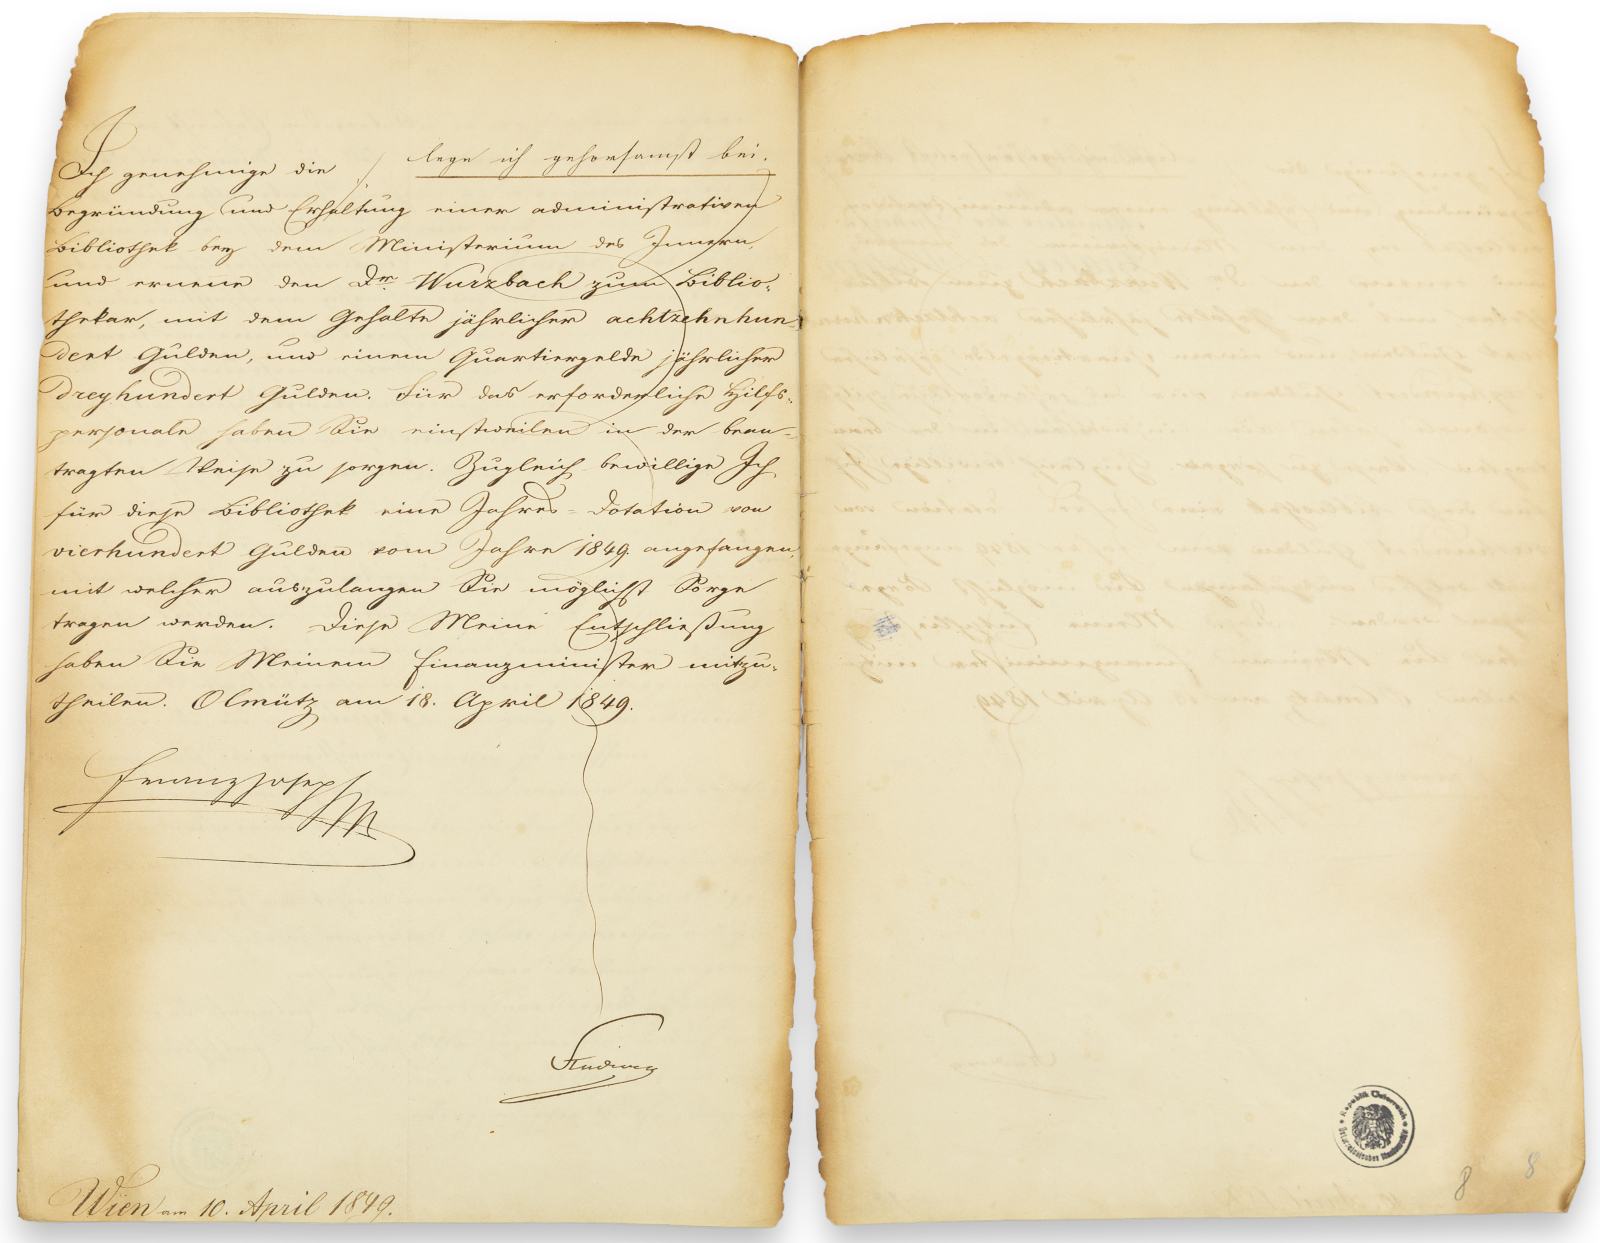 lege ich gehorsamst bei.
Ich genehmige die
Begründung und Erhaltung einer administrativen
Bibliothek bey dem Ministerium des Innern,
und ernene den Dr. Wurzbach zum Biblio-
thekar, mit dem Gehalte jährlicher achtzehnhun-
dert Gulden, und einem Quartiergelde jährlicher
dreyhundert Gulden. Für das erforderliche Hilfs-
personale haben Sie einstweilen in der bean-
tragten Weise zu sorgen. Zugleich bewillige Ich
für diese Bibliothek eine Jahres-Dotation von
vierhundert Gulden vom Jahre 1849. angefangen,
mit welcher auszulangen Sie möglichst Sorge
tragen werden. Diese Meine Entschließung
haben Sie Meinem Finanzminister mitzu-
theilen. Olmütz am 18. April 1849.
Franz Joseph
Stadion
Wien am 10. April 1849.
Republik Österreich
Österreichisches Staatsarchiv
8 8